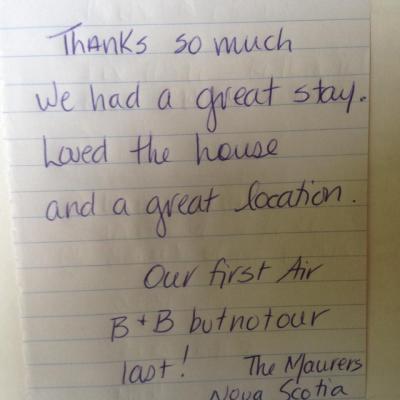 Thanks so much
We had a great stay.
Loved the house
and a great location.
Our first Air
B + B but not our
last! The Maurers
Nova Scotia